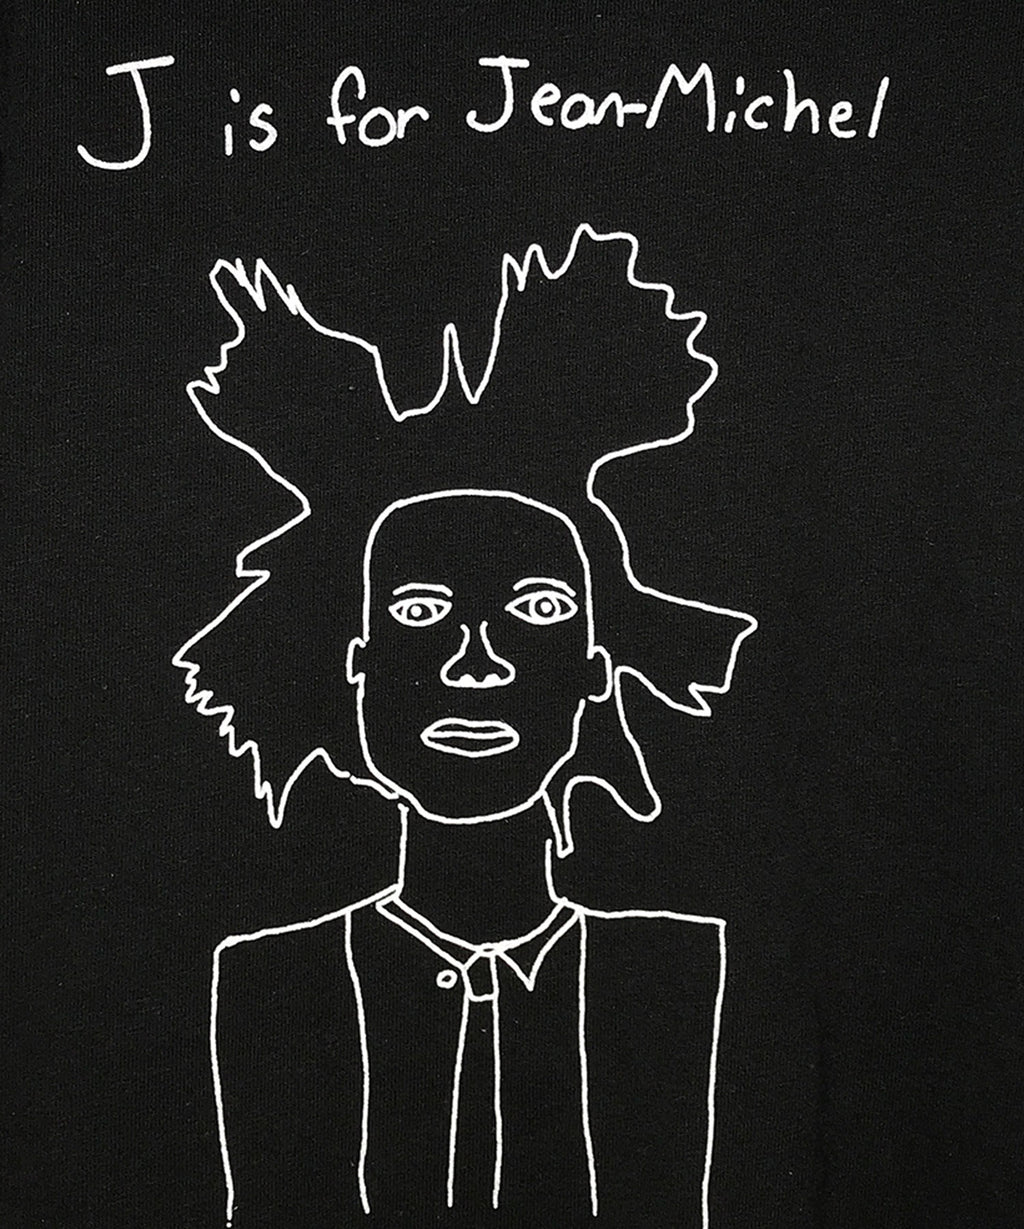 J is for Jean-Michel